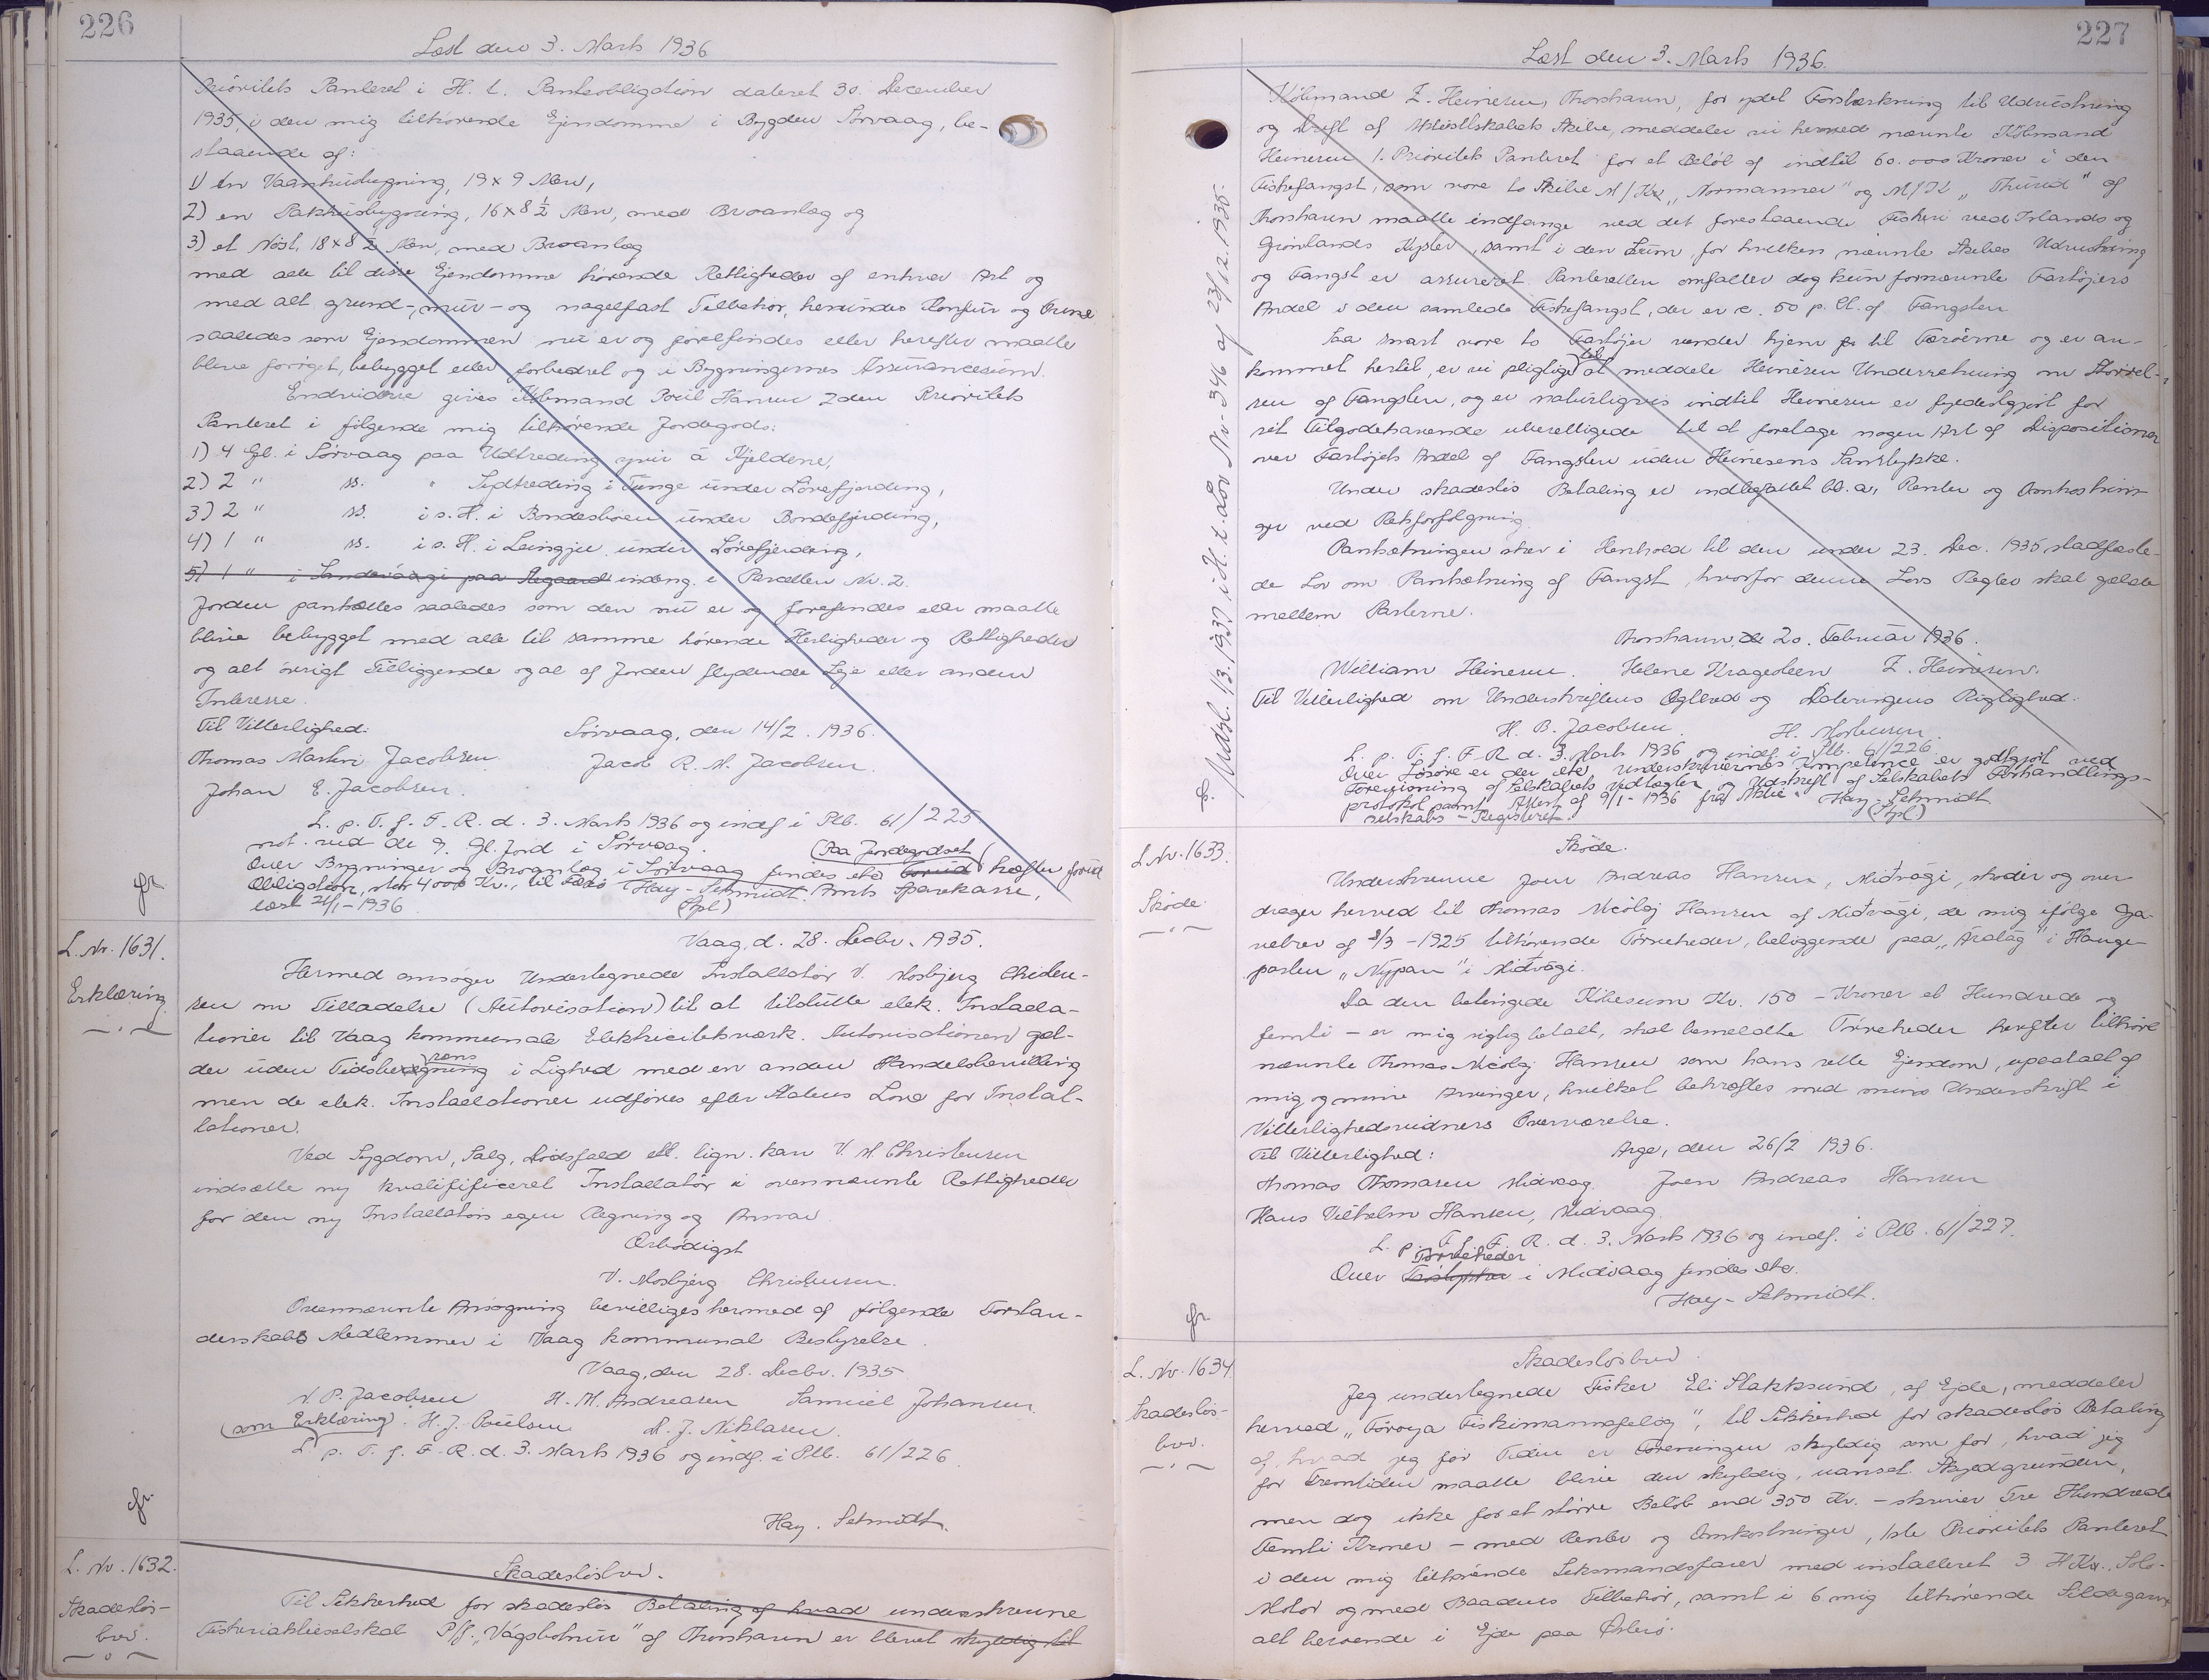 226
Læst den 3. Marts 1936
Prioritets Panteret i H. t. Panteobligation dateret 30. December
1935, i den mig tilhørende Ejendomme i Bygden Sørvaag, be-
staaende af:
1) en Vaaninghusbygning, 19 x 9 Alen,
2) en Pakhusbygning, 16 x 8 ½ Alen, med Broanlæg og
3) et Nøst, 18 x 8 ½ Alen, med Broanlæg
med alle til disse Ejendomme hørende Rettigheder af enhver Art og
med alt grund-, mur- og nagelfast Tilbehør, herunder Komfur og Ovne
saaledes som Ejendommen nu er og forefindes eller herefter maatte
blive forøget, bebygget eller forbedret og i Bygningernes Assurancesum.
Endvidere gives Købmand Poul Hansen 2den Prioritets
Panteret i følgende mig tilhørende Jordegods:
1) 4 Gl. i Sørvaag paa Udtreding yvir á Kjeldene,
2) 2 " ss. " Sydtreding i Tunge under Lørefjerding,
3) 2 " ss. i s. H. i Bondesbøen under Bondefjerding,
4) 1 " ss. i s. H. i Leingju under Lørefjerding,
5) 1 " i Sandavaagi paa Aegaard indeng. i Parcellen Nr. 2.
Jorden pantsættes saaledes som den nu er og forefindes eller maatte
blive bebygget med alle til samme hørende Herligheder og Rettigheder
og alt øvrigt Tilliggende og al af Jorden flydende Leje eller anden
Interesse.
Til Vitterlighed: Sørvaag, den 14/2. 1936.
Thomas Martin Jacobsen Jacob R. M. Jacobsen.
Johan E. Jacobsen.
L. p. T. f. F. R. d. 3. Marts 1936 og indf. i Ptb. 61/225
not. ved de 9. Gl. Jord i Sørvaag. (Paa Jordegodset
Over Bygninger og Broanlæg i Sørvaag findes ete hæfter forud
Obligation, stor 4000 Kr., til Færø Amts Sparekasse,
læst 21/1-1936 Hay-Schmidt. (Spl)
L. Nr. 1631.
Erklæring
Vaag, d. 28. Decbr. 1935.
Hermed ansøger Undertegnede Installatør V. Mosbjerg Christen-
sen om Tilladelse (Autorisation) til at tilslutte elek. Installa-
tioner til Vaag kommunale Elektricitetsværk. Autorisationen gæl-
der uden Tidsbegrænsning i Lighed med en anden Handelsbevilling
men de elek. Installationer udføres efter Statens Love for Instal-
lationer.
Ved Sygdom, Salg, Dødsfald ell. lign. kan V. M. Christensen
indsætte ny kvalifificeret Installatør i ovennævnte Rettigheder
for den ny Installatørs egen Regning og Ansvar.
Ærbødigst
V. Mosbjerg Christensen.
Ovennævnte Ansøgning bevilliges hermed af følgende Forstan-
derskabs Medlemmer i Vaag kommunal Bestyrelse.
Vaag, den 28. Decbr. 1935
N. P. Jacobsen H. M. Andreasen Samuel Johansen
(som Erklæring). H. J. Poulsen M. J. Niklasen.
L. p. T. f. F. R. d. 3. Marts 1936 og indf. i Ptb. 61/226.
Hay. Schmidt.
L. Nr. 1632.
Skadesløs-
brev.
Skadesløsbrev.
Til Sikkerhed for skadesløs Betaling af hvad underskrevne
Fiskeriaktieselskab P/f. "Vágsbotnur" af Thorshavn er blevet skyldig til
227
Læst den 3. Marts 1936.
Købmand Z. Heinesen, Thorshavn, for ydet Forstærkning til Udrustning
og Drift af Aktieselskabets Skibe, meddeler vi herved nævnte Købmand
Heinesen 1. Prioritets Panteret for et Beløb af indtil 60.000 Kroner i den
Fiskefangst, som vore to Skibe M/Kr. "Normanner" og M/K "Thurid" af
Thorshavn maatte indfange ved det forestaaende Fiskeri ved Islands og
Grønlands Kyster, samt i den Sum, for hvilken nævnte Skibes Udrustning
og Fangst er assureret. Panteretten omfatter dog kun fornævnte Fartøjers
Andel i den samlede Fiskefangst, der er c. 50 p. Ct. af Fangsten.
Saa snart vore to Fartøjer vender hjem fr til Færøerne og er an-
kommet hertil, er vi pligtige til at meddele Heinesen Underretning om Størrel-
sen af Fangsten, og er naturligvis indtil Heinesen er fyldestgjort for
sit Tilgodehavende uberettigede til at foretage nogen Art af Dispositioner
over Fartøjets Andel af Fangsten uden Heinesens Samtykke.
Under skadesløs Betaling er indbefattet bl. a., Renter og Omkostnin-
ger ved Retsforfølgning.
Pantsætningen sker i Henhold til den under 23. Dec. 1935 stadfæste-
de Lov om Pantsætning af Fangst, hvorfor denne Lovs Regler skal gælde
mellem Parterne.
Thorshavn, de 20. Februar 1936.
William Heinesen. Helene Kragesteen Z. Heinesen.
Til Vitterlighed om Underskriftens Ægthed og Dateringens Rigtighed.
H. B. Jacobsen. H. Mortensen.
L. p. T. f. F. R. d. 3. Marts 1936 og indf. i Ptb. 61/226.
Over Løsøre er der ete. Underskrivernes Kompetence er godtgjort ved
Forevisning af Selskabets Vedtægter og Udskrift af Selskabets Forhandlings-
protokol samt Attest af 9/1-1936 fra Aktie-
selskabs-Registeret. Hay-Schmidt
(Spl)
S. Udsl. 1/3. 1937 i H. t. Lov Nr. 346 af 23/12. 1935.
L. Nr. 1633.
Skøde.
Skøde.
Underskrevne Joen Andreas Hansen, Miđvági, skøder og over
drager herved til Thomas Nicolaj Hansen af Miđvági, de mig ifølge Ga-
vebrev af 8/3-1925 tilhørende Tørveheder, beliggende paa "Áralág" i Hauge-
parten "Nýpan" i Miđvági.
Da den betingede Købesum Kr. 150 - Kroner et Hundrede og
femti - er mig rigtig betalt, skal bemeldte Tørveheder herefter tilhøre
nævnte Thomas Nicolaj Hansen som hans rette Ejendom, upaatalt af
mig og mine Arvinger, hvilket bekræftes med mine Underskrift i
Vitterlighedsvidners Overværelse.
Til Vitterlighed: Arge, den 26/2 1936.
Thomas Thomasen Midvaag. Joen Andreas Hansen
Hans Vilhelm Hansen, Midvaag.
L. p. T. f. F. R. d. 3. Marts 1936 og indf. i Ptb. 61/227.
Over Tørveheder i Midvaag findes ete.
Hay-Schmidt.
L. Nr. 1634.
Skadesløs-
brev.
Skadesløsbrev.
Jeg undertegnede Fisker Eli Slakksund, af Ejde, meddeler
herved "Føroya Fiskimannafelag", til Sikkerhed for skadesløs Betaling
af, hvad jeg for Tiden er Foreningen skyldig som for, hvad jeg
for Fremtiden maatte blive den skyldig, uanset Skyldgrunden,
men dog ikke for et større Beløb end 350 Kr. - skriver Tre Hundrede
Femti Kroner - med Renter og Omkostninger, 1ste Prioritets Panteret
i den mig tilhørende Seksmandsfarer med installeret 3 HKr. Solo-
Motor og med Baadens Tilbehør, samt i 6 mig tilhørende Sildegarn
alt beroende i Ejde paa Østerø.